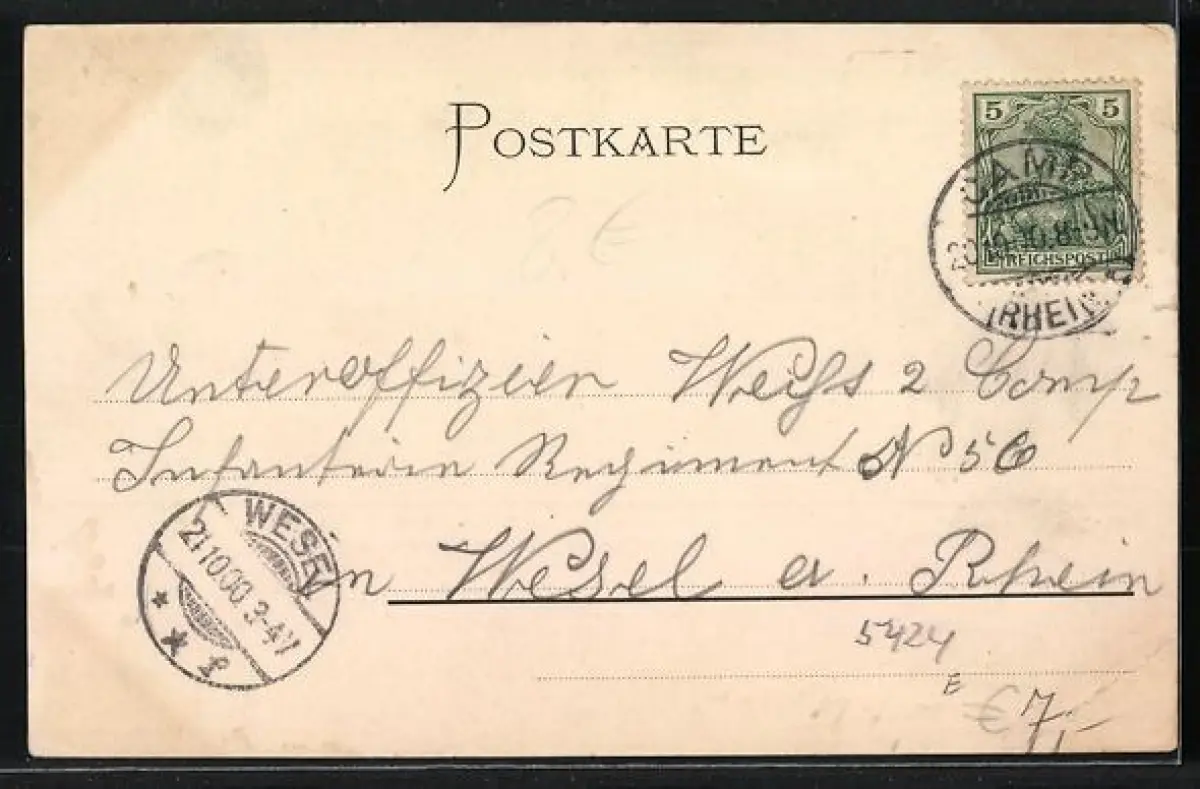 POSTKARTE
5 5
REICHSPOST
CAMP
(RHEIN)
Unteroffizier Weihs 2 Comp
Infanterie Regiment N 56
in Wesel a. Rhein
WESEL
21.10.00.3-4V
* * f
5424
E
€ 7,-
8€